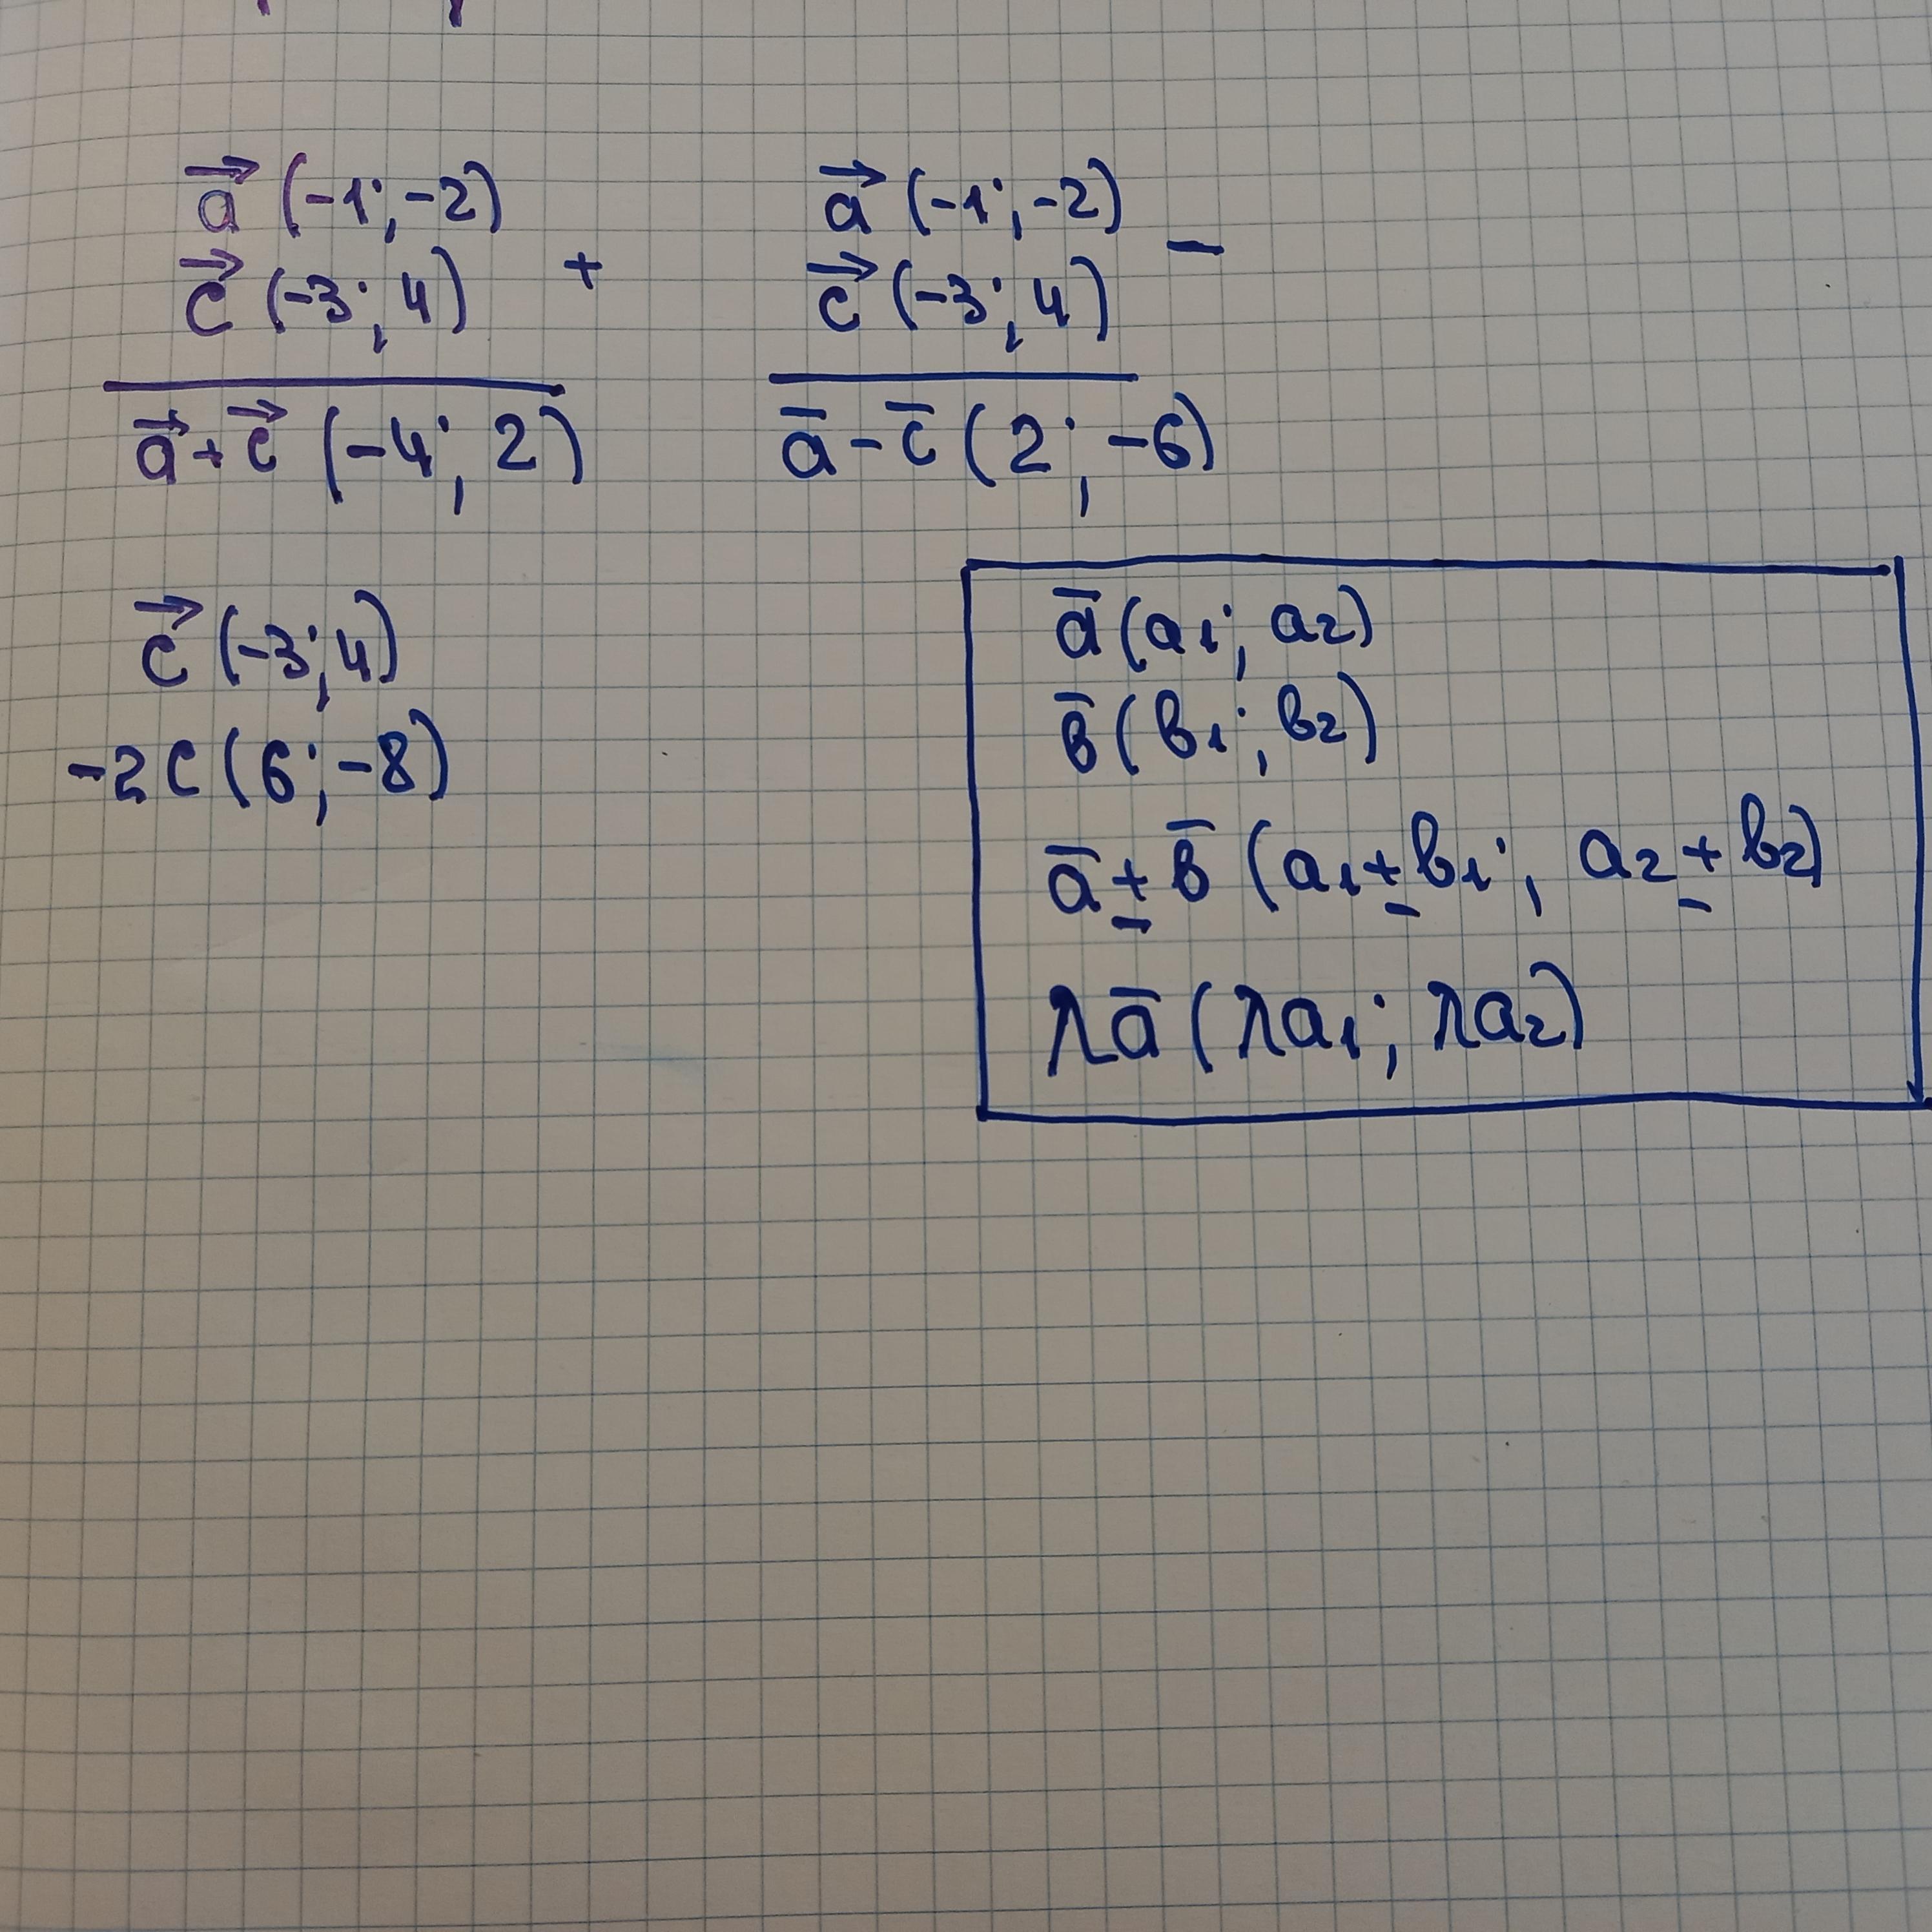 a⃗ (-1; -2)
c⃗ (-3; 4) +
a⃗ + c⃗ (-4; 2)
a⃗ (-1; -2) –
c⃗ (-3; 4)
a̅ - c̅ (2; -6)
c⃗ (-3; 4)
-2c (6; -8)
a̅ (a₁; a₂)
в̅ (в₁; в₂)
a̅ ± в̅ (a₁ ± в₁; a₂ ± в₂)
λa̅ (λa₁; λa₂)